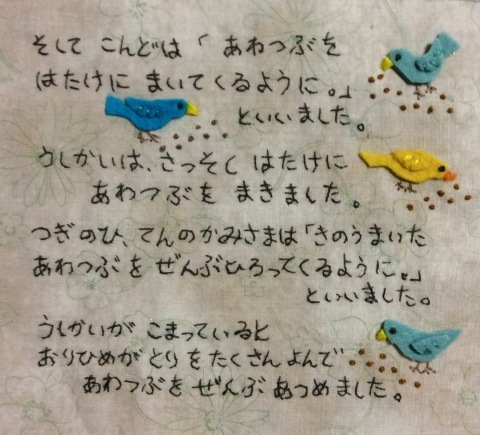 そして こんどは「 あわつぶを
はたけに まいてくるように。」
といいました。
うしかいは、さっそく はたけに
あわつぶを まきました。
つぎのひ、てんのかみさまは「きのうまいた
あわつぶを ぜんぶひろってくるように。」
といいました。
うしかいが こまっていると
おりひめがとりを たくさん よんで
あわつぶを ぜんぶ あつめました。